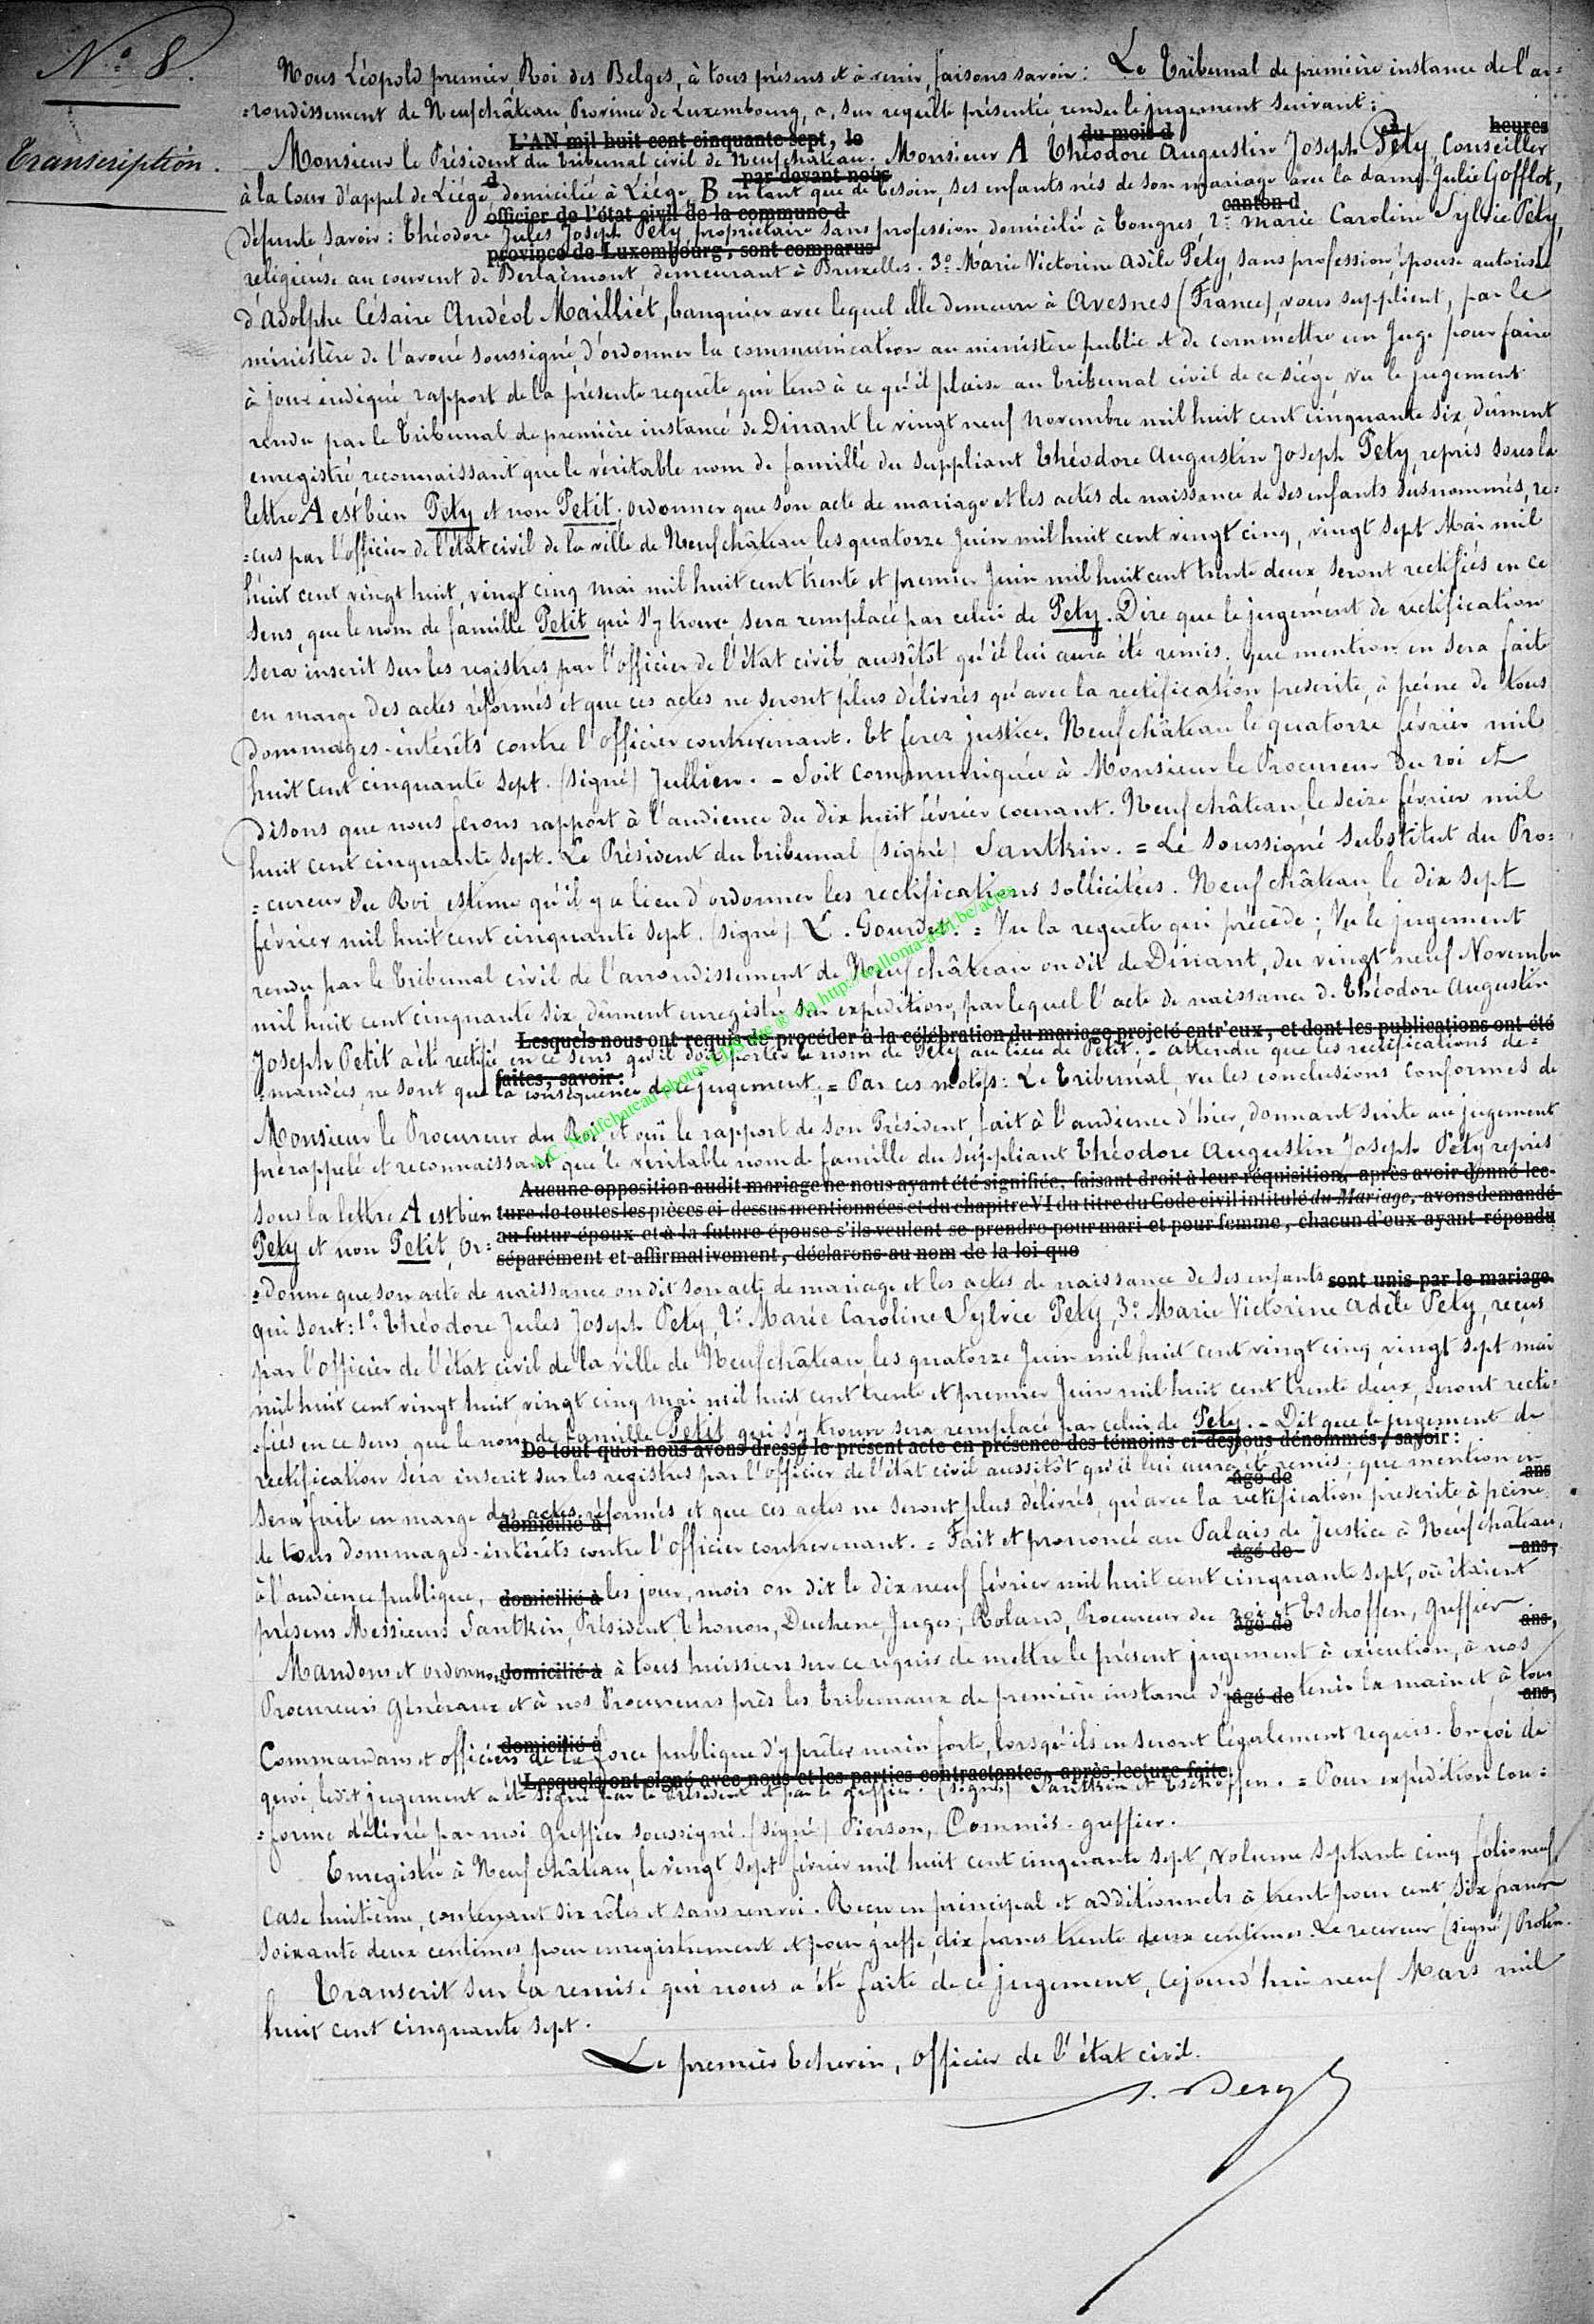 N.º 8.
Transcription.
Nous Léopold premier, Roi des Belges, à tous présens et à venir, faisons savoir : Le Tribunal de première instance de l'ar=
=rondissement de Neufchâteau, Province de Luxembourg, a, sur requête présentée rendu le jugement suivant :
L'AN mil huit cent cinquante sept, le du mois d à heures
Monsieur le Président du Tribunal civil de Neufchâteau. Monsieur A Théodore Augustin Joseph Pety, Conseiller
d par devant nous
à la Cour d'appel de Liége, domicilié à Liége, B en tant que de besoin, ses enfants nés de son mariage avec la dame Julie Gofflot,
officier de l'état civil de la commune d canton d
défunte savoir : Théodore Jules Joseph Pety, propriétaire sans profession domicilié à Tongres, 2.º Marie Caroline Sylvie Pety,
province de Luxembourg, sont comparus
religieuse au couvent de Berlaimont demeurant à Bruxelles. 3.º Marie Victorine Adèle Pety, sans profession, épouse autorisée
d'Adolphe Césaire Andéol Mailliét, banquier avec lequel elle demeure à Avesnes (France), vous supplient, par le
ministère de l'avoué soussigné, d'ordonner la communication au ministère public et de commettre un Juge pour faire
à jour indiqué rapport de la présente requête qui tend à ce qu'il plaise au Tribunal civil de ce siége, vu le jugement
rendu par le Tribunal de première instance de Dinant le vingt neuf novembre mil huit cent cinquante six, dûment
enregistré, reconnaissant que le véritable nom de famille du suppliant Théodore Augustin Joseph Pety, repris sous la
lettre A est bien Pety et non Petit ; ordonner que son acte de mariage et les actes de naissance de ses enfants susnommés, re=
=cus par l'officier de l'état civil de la ville de Neufchâteau, les quatorze Juin mil huit cent vingt cinq, vingt sept Mai mil
huit cent vingt huit, vingt cinq mai mil huit cent trente et premier Juin mil huit cent trente deux seront rectifiés en ce
sens, que le nom de famille Petit qui s'y trouve, sera remplacé par celui de Pety. Dire que le jugement de rectification
sera inscrit sur les registres par l'officier de l'état civil, aussitôt qu'il lui aura été remis ; que mention en sera faite
en marge des actes réformés et que ces actes ne seront plus délivrés qu'avec la rectification prescrite, à peine de tous
dommages-intérêts contre l'officier contrevenant. Et ferez justice. Neufchâteau le quatorze février mil
huit cent cinquante sept. (signé) Jullien. - Soit communiquée à Monsieur le Procureur du roi et
disons que nous ferons rapport à l'audience du dix huit février courant. Neufchâteau, le seize février mil
huit cent cinquante sept. Le Président du Tribunal (signé) Santkin. = Le soussigné substitut du Pro=
=cureur du Roi estime qu'il y a lieu d'ordonner les rectifications sollicitées. Neufchâteau, le dix sept
février mil huit cent cinquante sept. (signé) L. Gourdet. = Vu la requête qui précède ; Vu le jugement
rendu par le Tribunal civil de l'arrondissement de Neufchâteau on dit de Dinant, du vingt neuf Novembre
mil huit cent cinquante six, dûment enregistré sur expédition, par lequel l'acte de naissance de Théodore Augustin
Lesquels nous ont requis de procéder à la célébration du mariage projeté entr'eux, et dont les publications ont été
Joseph Petit a été rectifié en ce sens qu'il doit porter le nom de Pety au lieu de Petit ; - attendu que les rectifications de=
faites, savoir :
=mandées ne sont que la conséquence de ce jugement ; = Par ces motifs : Le Tribunal, vu les conclusions conformes de
Monsieur le Procureur du Roi et ouï le rapport de son Président, fait à l'audience d'hier, donnant suite au jugement
prérappelé et reconnaissant que le véritable nom de famille du suppliant Théodore Augustin Joseph Pety repris
Aucune opposition audit mariage ne nous ayant été signifiée, faisant droit à leur réquisition, après avoir donné lec-
sous la lettre A est bien ture de toutes les pièces ci-dessus mentionnées et du chapitre VI du titre du Code civil intitulé du Mariage, avons demandé
au futur époux et à la future épouse s'ils veulent se prendre pour mari et pour femme, chacun d'eux ayant répondu
Pety et non Petit, Or= séparément et affirmativement, déclarons au nom de la loi que
=donne que son acte de naissance on dit son acte de mariage et les actes de naissance de ses enfants sont unis par le mariage.
qui sont : 1.º Théodore Jules Joseph Pety, 2.º Marie Caroline Sylvie Pety, 3.º Marie Victorine Adèle Pety, reçus
par l'officier de l'état civil de la ville de Neufchâteau, les quatorze Juin mil huit cent vingt cinq, vingt sept mai
mil huit cent vingt huit, vingt cinq mai mil huit cent trente et premier Juin mil huit cent trente deux, seront recti=
=fiés en ce sens, que le nom de famille Petit qui s'y trouve sera remplacé par celui de Pety. - Dit que le jugement de
De tout quoi nous avons dressé le présent acte en présence des témoins ci-dessous dénommés, savoir :
rectification sera inscrit sur les registres par l'officier de l'état civil aussitôt qu'il lui aura été remis ; que mention en
âgé de ans
sera faite en marge des actes réformés et que ces actes ne seront plus délivrés, qu'avec la rectification prescrite à peine
domicilié à
de tous dommages-intérêts contre l'officier contrevenant. = Fait et prononcé au Palais de Justice à Neufchâteau,
âgé de ans,
à l'audience publique, domicilié à les jour, mois on dit le dix neuf février mil huit cent cinquante sept, où étaient
présens Messieurs Santkin, Président, Thonon, Duchene, Juges ; Roland, Procureur du roi et Tschoffen, greffier.
âgé de ans,
Mandons et ordonnons domicilié à à tous huissiers sur ce requis de mettre le présent jugement à exécution, à nos
Procureurs Généraux et à nos Procureurs près les Tribunaux de première instance d'y âgé de tenir la main et à tous
ans,
domicilié à
Commandans et officiers de la force publique d'y prêter main forte, lorsqu'ils en seront légalement requis. En foi de
Lesquels ont signé avec nous et les parties contractantes, après lecture faite.
quoi, ledit jugement a été signé par le Président et par le greffier. (signé) Santkin et Tschoffen. = Pour expédition con=
=forme délivrée par moi greffier soussigné. (signé) Pierson, Commis-greffier.
Enregistré à Neufchâteau, le vingt sept février mil huit cent cinquante sept, volume septante cinq folio neuf,
case huitième, contenant six rôles et sans renvoi. Reçu en principal et additionnels à trente pour cent, six francs
soixante deux centimes pour enregistrement et pour greffe, dix francs trente deux centimes. Le receveur (signé)
Transcrit sur la remise qui nous a été faite de ce jugement, cejourd'hui neuf Mars mil
huit cent cinquante sept.
Le premier Echevin, officier de l'état civil.
A.C. Neufchateau photos EDS dte ® via http://wallonia-asbl.be/actes